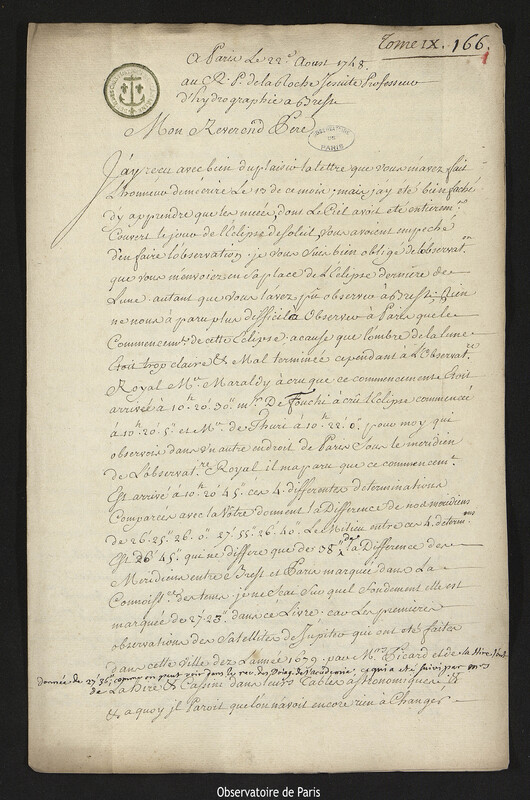 Tome IX. 166.
1
A Paris Le 22.e Aoust 1748.
au R. P. de la Roche Jesuite Professeur
d'hydrographie a Brest
Mon Reverend Pere
OBSERVATOIRE DE PARIS
J'ay reçu avec bien du plaisir la lettre que vous m'avez fait
L'honneur de m'ecrire Le 13 de ce mois, mais j'ay eté bien faché
d'y apprendre que les nuées, dont Le Ciel avoit eté entierem.t
Couvert le jour de l'Eclipse de Soleil, vous avoient empeché
d'en faire l'observation. je vous suis bien obligé de l'observat.on
que vous m'envoiez en sa place de L'Eclipse derniere de
Lune. autant que vous l'avez pu observer à Brest. Rien
ne nous à paru plus difficile à observer à Paris que le
Commencem.t de cette Eclipse. a cause que l'ombre de la lune
étoit trop claire & Mal terminée cependant à L'Observat.re
Royal M.r Maraldy à cru que ce commencement étoit
arrivée à 10.h 20.' 30." M.r De Fouchi à crû l'Eclipse commencé
à 10.h 20.' 5." et M.r de Thuri à 10.h 22.' 0." pour moy qui
observois dans un autre endroit de Paris sous le meridien
de L'observat.re Royal il m'a paru que ce commencem.t
Est arrivé à 10.h 20.' 45." ces 4. differentes determinations
Comparées avec la Votre donnent la Difference de nos meridiens
de 26.' 25." 26.' 0." 27.' 55." 26.' 40." Le Milieu entre ces 4. determ.ons
Est 26.' 45." qui ne differe que de 38." de la Difference des
Meridiens entre Brest et Paris marquée dans La
Connoiss.ce des tems. je ne scai sur quel fondement elle est
marquée de 27.' 23." dans ce Livre. car Les premieres
observations des Satellites de Jupiter qui ont eté faites
dans cette Ville dez L'année 1679. par M.rs Picard et de la Hire l'ont
donnée de 27.' 36." comme on peut voir dans le rec. des Voiag. de l'academie. ce qui a eté suivi par M.rs
de La Hire & Cassini dans leurs Tables astronomiques, &
& a quoy il Paroit que l'on n'avoit encore rien à Changer
Observatoire de Paris